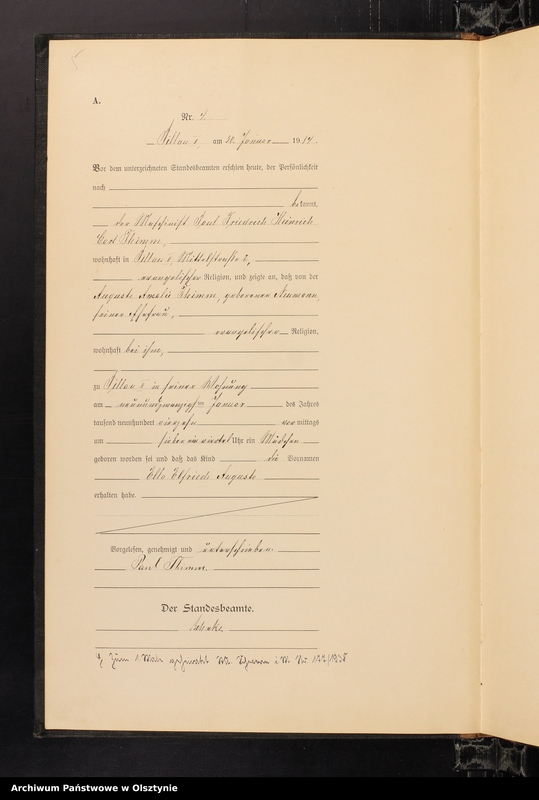 A.
Nr. 4
Pillau II, am 30. Januar 1914.
Vor dem unterzeichneten Standesbeamten erschien heute, der Persönlichkeit
nach
bekannt,
der Maschinist Paul Friedrich Heinrich
Carl Thimm,
wohnhaft in Pillau II, Mittelstraße 2,
evangelischer Religion, und zeigte an, daß von der
Auguste Amalie Thimm, geborenen Neumann,
seiner Ehefrau,
evangelischer Religion,
wohnhaft bei ihm,
zu Pillau II in seiner Wohnung
am neunundzwanzigsten Januar des Jahres
tausend neunhundert vierzehn vormittags
um sieben ein viertel Uhr ein Mädchen
geboren worden sei und daß das Kind die Vornamen
Ella Elfriede Auguste
erhalten habe.
Vorgelesen, genehmigt und unterschrieben.
Paul Thimm.
Der Standesbeamte.
Archiwum Państwowe w Olsztynie